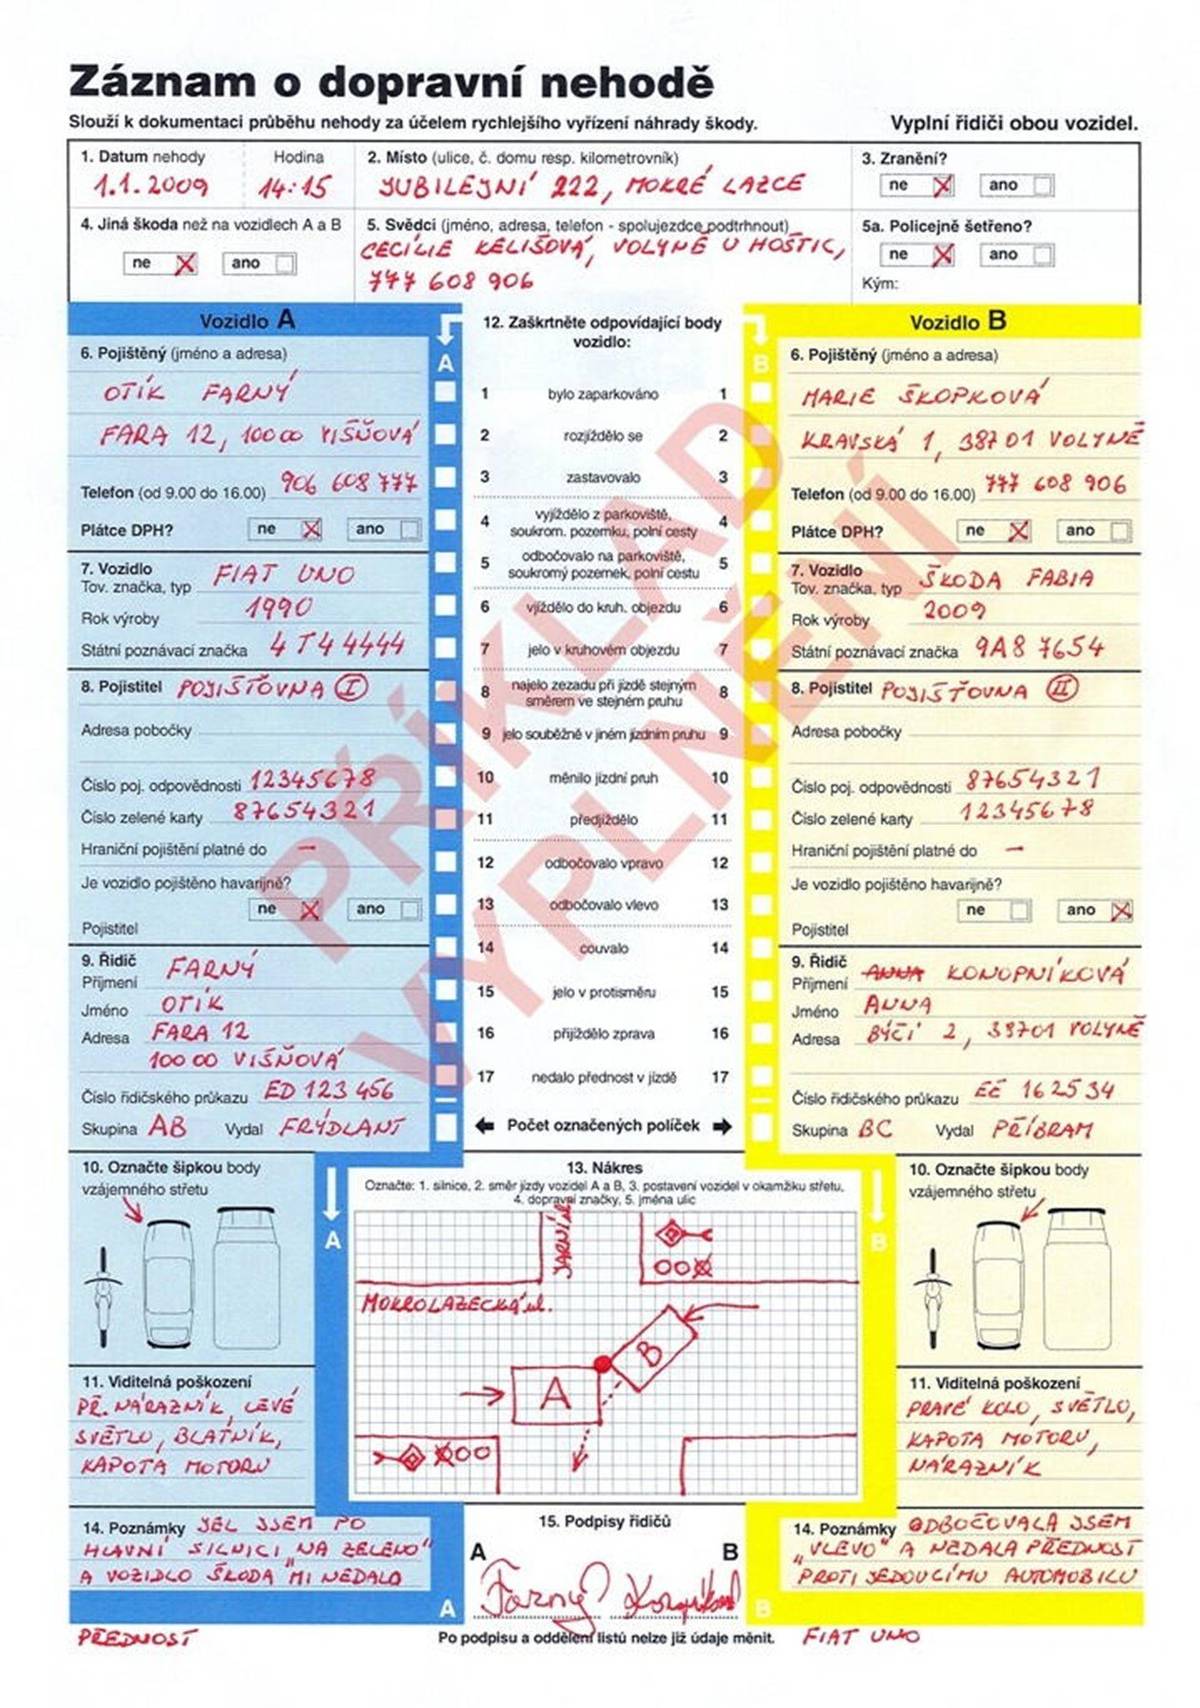 Záznam o dopravní nehodě
Slouží k dokumentaci průběhu nehody za účelem rychlejšího vyřízení náhrady škody. Vyplní řidiči obou vozidel.
1. Datum nehody Hodina
1.1.2009 14:15
2. Místo (ulice, č. domu resp. kilometrovník)
JUBILEJNÍ 222, MOKRÉ LAZCE
3. Zranění?
ne X ano
4. Jiná škoda než na vozidlech A a B
ne X ano
5. Svědci (jméno, adresa, telefon - spolujezdce podtrhnout)
CECÍLIE KELIŠOVÁ, VOLYNĚ U HOŠTIC,
777 608 906
5a. Policejně šetřeno?
ne X ano
Kým:
Vozidlo A
6. Pojištěný (jméno a adresa)
OTÍK FARNÝ
FARA 12, 10000 VIŠŇOVÁ
Telefon (od 9.00 do 16.00) 906 608 777
Plátce DPH? ne X ano
7. Vozidlo
Tov. značka, typ FIAT UNO
Rok výroby 1990
Státní poznávací značka 4T4 4444
8. Pojistitel POJIŠŤOVNA I
Adresa pobočky
Číslo poj. odpovědnosti 12345678
Číslo zelené karty 87654321
Hraniční pojištění platné do –
Je vozidlo pojištěno havarijně?
ne X ano
Pojistitel
9. Řidič
Příjmení FARNÝ
Jméno OTÍK
Adresa FARA 12
100 00 VIŠŇOVÁ
Číslo řidičského průkazu ED 123 456
Skupina AB Vydal FRÝDLANT
10. Označte šipkou body
vzájemného střetu
11. Viditelná poškození
PŘ. NÁRAZNÍK, LEVÉ
SVĚTLO, BLATNÍK,
KAPOTA MOTORU
14. Poznámky JEL JSEM PO
HLAVNÍ SILNICI "NA ZELENO"
A VOZIDLO ŠKODA MI NEDALO
PŘEDNOST
A
12. Zaškrtněte odpovídající body
vozidlo:
A B
1 bylo zaparkováno 1
2 rozjíždělo se 2
3 zastavovalo 3
4 vyjíždělo z parkoviště,
soukrom. pozemku, polní cesty 4
5 odbočovalo na parkoviště,
soukromý pozemek, polní cestu 5
6 vjíždělo do kruh. objezdu 6
7 jelo v kruhovém objezdu 7
8 najelo zezadu při jízdě stejným
směrem ve stejném pruhu 8
9 jelo souběžně v jiném jízdním pruhu 9
10 měnilo jízdní pruh 10
11 předjíždělo 11
12 odbočovalo vpravo 12
13 odbočovalo vlevo 13
14 couvalo 14
15 jelo v protisměru 15
16 přijíždělo zprava 16
17 nedalo přednost v jízdě 17
Počet označených políček
PŘÍKLAD
VYPLNĚNÍ
13. Nákres
Označte: 1. silnice, 2. směr jízdy vozidel A a B, 3. postavení vozidel v okamžiku střetu,
4. dopravní značky, 5. jména ulic
A B
JARNÍ ul.
MOKROLAZECKÁ ul.
A
B
15. Podpisy řidičů
A B
Farný Konopníková
Po podpisu a oddělení listů nelze již údaje měnit.
Vozidlo B
6. Pojištěný (jméno a adresa)
MARIE ŠKOPKOVÁ
KRAVSKÁ 1, 38701 VOLYNĚ
Telefon (od 9.00 do 16.00) 777 608 906
Plátce DPH? ne X ano
7. Vozidlo
Tov. značka, typ ŠKODA FABIA
Rok výroby 2009
Státní poznávací značka 9A8 7654
8. Pojistitel POJIŠŤOVNA II
Adresa pobočky
Číslo poj. odpovědnosti 87654321
Číslo zelené karty 12345678
Hraniční pojištění platné do –
Je vozidlo pojištěno havarijně?
ne ano X
Pojistitel
9. Řidič
Příjmení ANNA KONOPNÍKOVÁ
Jméno ANNA
Adresa BÝČÍ 2, 38701 VOLYNĚ
Číslo řidičského průkazu EČ 162534
Skupina BC Vydal PŘÍBRAM
10. Označte šipkou body
vzájemného střetu
11. Viditelná poškození
PRAVÉ KOLO, SVĚTLO,
KAPOTA MOTORU,
NÁRAZNÍK
14. Poznámky ODBOČOVALA JSEM
"VLEVO" A NEDALA PŘEDNOST
PROTIJEDOUCÍMU AUTOMOBILU
FIAT UNO
B